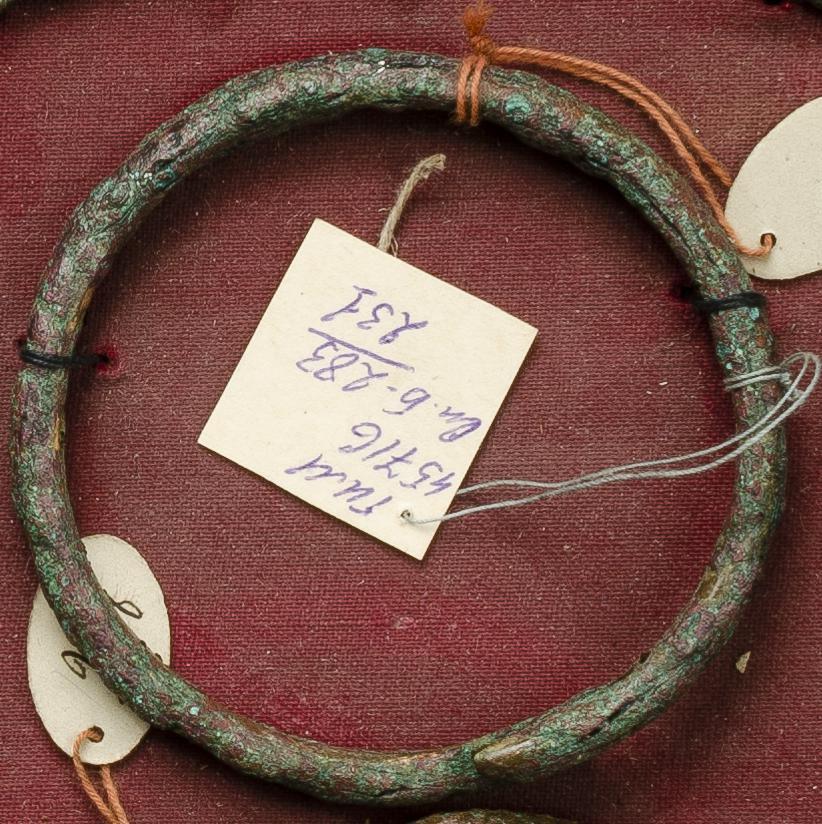 ГИМ
45716
оп. Б-283
231